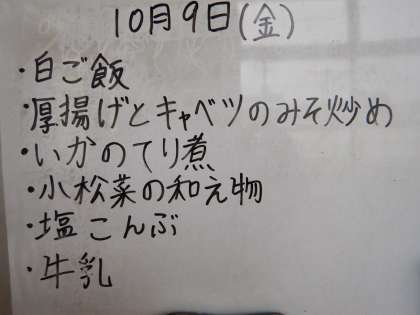 10月9日(金)
・白ご飯
・厚揚げとキャベツのみそ炒め
・いかのてり煮
・小松菜の和え物
・塩こんぶ
・牛乳